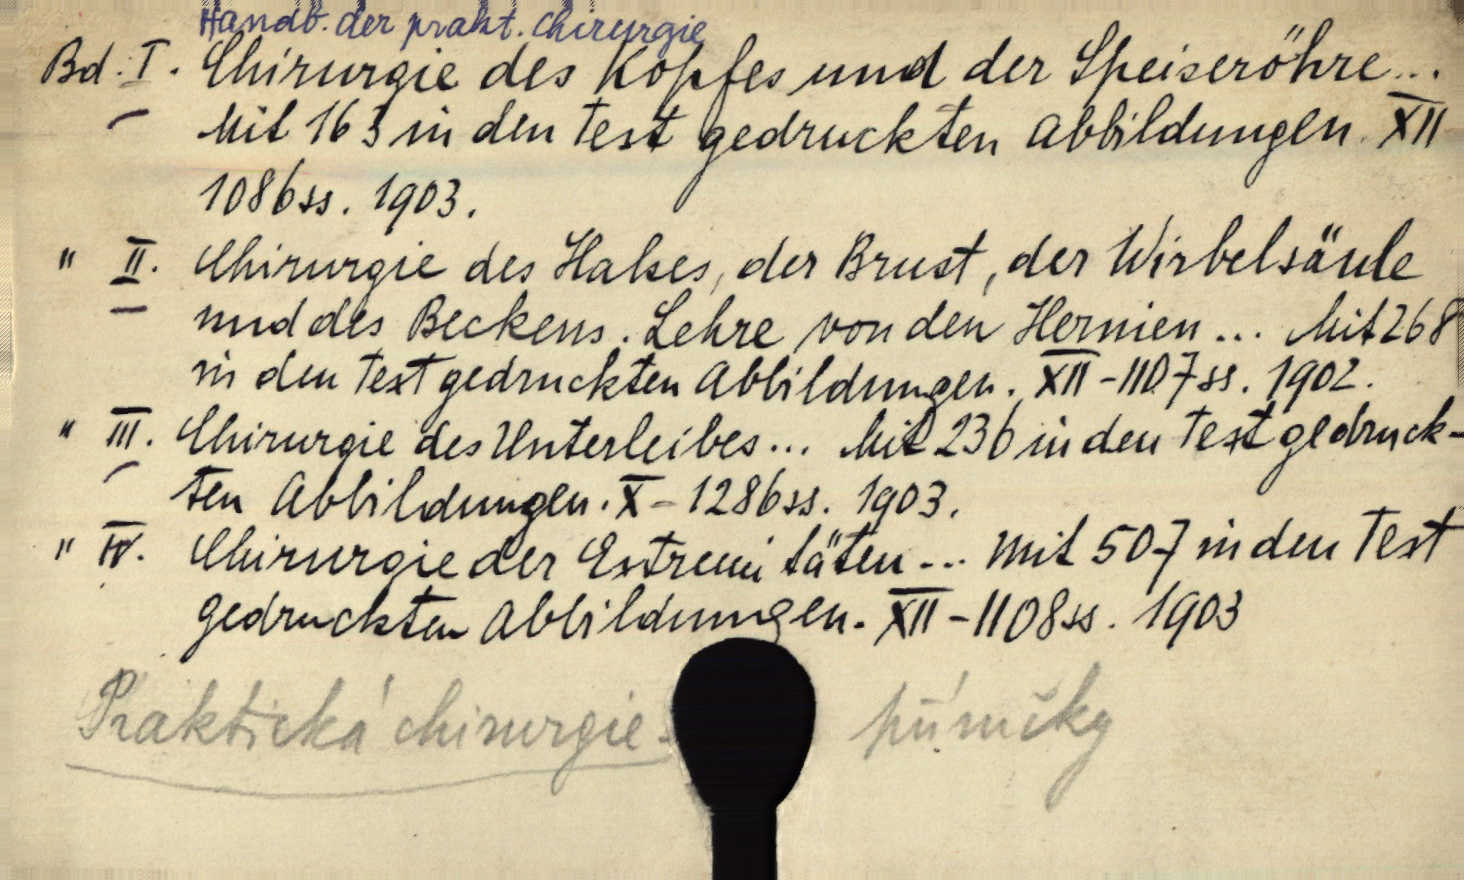 Handb. der prakt. Chirurgie
Bd. I. Chirurgie des Kopfes und der Speiseröhre...
Mit 163 in den Text gedruckten Abbildungen. XII
1086 ss. 1903.
" II. Chirurgie des Halses, der Brust, der Wirbelsäule
und des Beckens. Lehre von den Hernien... Mit 268
in den Text gedruckten Abbildungen. XII - 1107 ss. 1902.
" III. Chirurgie des Unterleibes... Mit 236 in den Text gedruck-
ten Abbildungen. X - 1286 ss. 1903.
" IV. Chirurgie der Extremitäten... Mit 507 in den Text
gedruckten Abbildungen. XII - 1108 ss. 1903
Praktická chirurgie - příručky